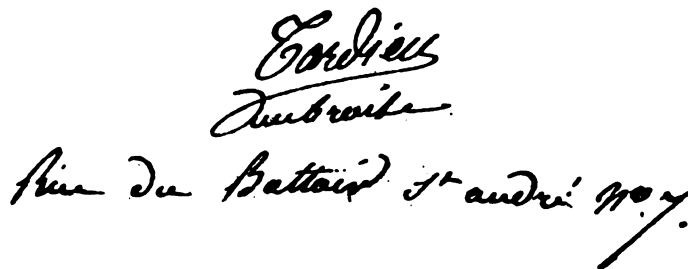 Tardieu
Ambroise
Rue du Battoir St andré no. 7.